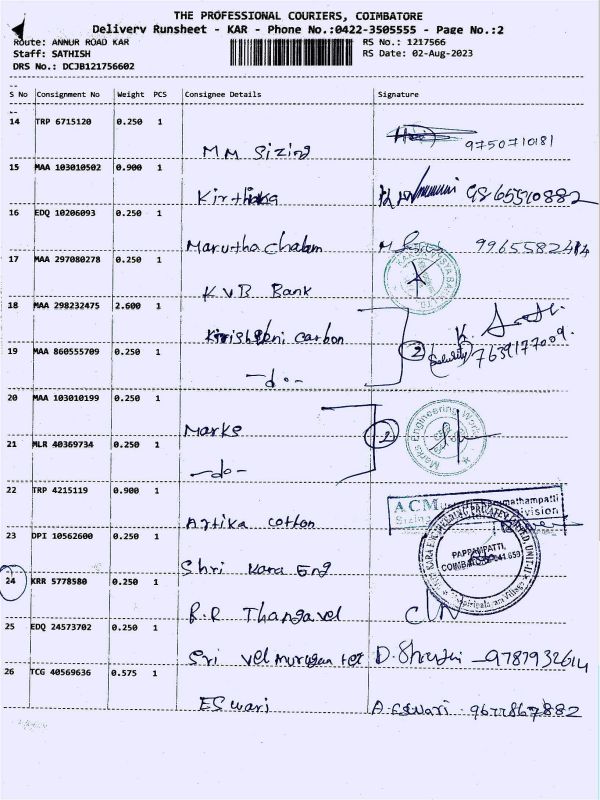 THE PROFESSIONAL COURIERS, COIMBATORE
Delivery Runsheet - KAR - Phone No.:0422-3505555 - Page No.:2
Route: ANNUR ROAD KAR RS No.: 1217566
Staff: SATHISH RS Date: 02-Aug-2023
DRS No.: DCJB121756602
S No Consignment No Weight PCS Consignee Details Signature
14 TRP 6715120 0.250 1
MM Sizing 9750710181
15 MAA 103010502 0.900 1
Kirthika 9865510882
16 EDQ 10206093 0.250 1
Marutha chalam 9965582414
17 MAA 297080278 0.250 1
KVB Bank
18 MAA 298232475 2.600 1
carbon K.
19 MAA 860555709 0.250 1
2 7639177009.
-do-
20 MAA 103010199 0.250 1
Marks 2 Marks Engineering Works
21 MLR 40369734 0.250 1
-do-
22 TRP 4215119 0.900 1
Artika cotton ACM
Sizing Division
23 DPI 10562600 0.250 1
Shri Kara Eng PAPPAMPATTI,
24 KRR 5778580 0.250 1
P.R Thangavel
25 EDQ 24573702 0.250 1
Sri vel murugan tex D. 9787932614
26 TCG 40569636 0.575 1
Eswari A. Eswari. 9677867882